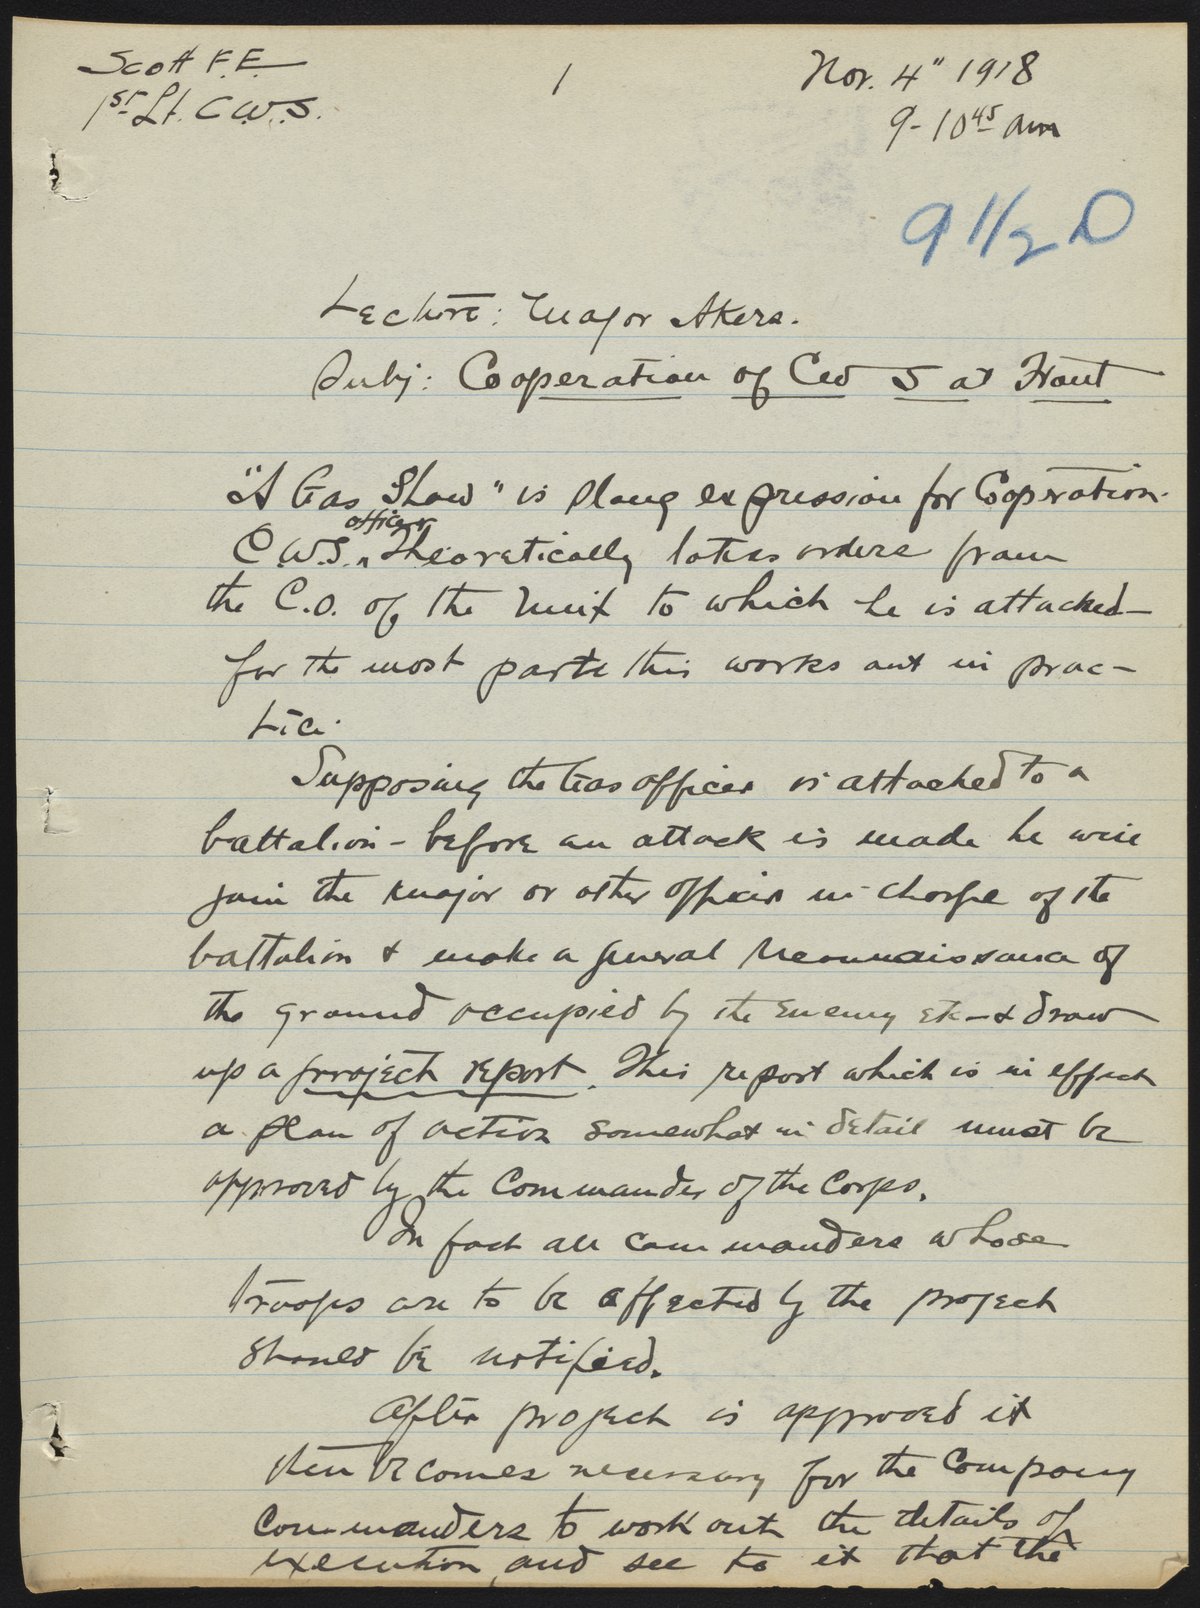 Scott F.E.
1st Lt. C.W.S.
1
Nov. 4" 1918
9-10 45 am
9 1/2 D
Lecture: Major Akers.
Subj: Cooperation of CWS at Front
"A Gas Show" is slang expression for Cooperation.
officer
C.W.S. Theoretically takes orders from
the C.O. of the unit to which he is attached—
for the most part this works out in prac-
tice.
Supposing the Gas officer is attached to a
battalion - before an attack is made he will
join the major or other officer in charge of the
battalion & make a general reconnaissance of
the ground occupied by the enemy etc - & draw
up a project report. This report which is in effect
a plan of action somewhat in detail must be
approved by the Commander of the Corps.
In fact all commanders whose
troops are to be affected by the project
should be notified.
After project is approved it
then becomes necessary for the Company
commanders to work out the details of
execution, and see to it that the